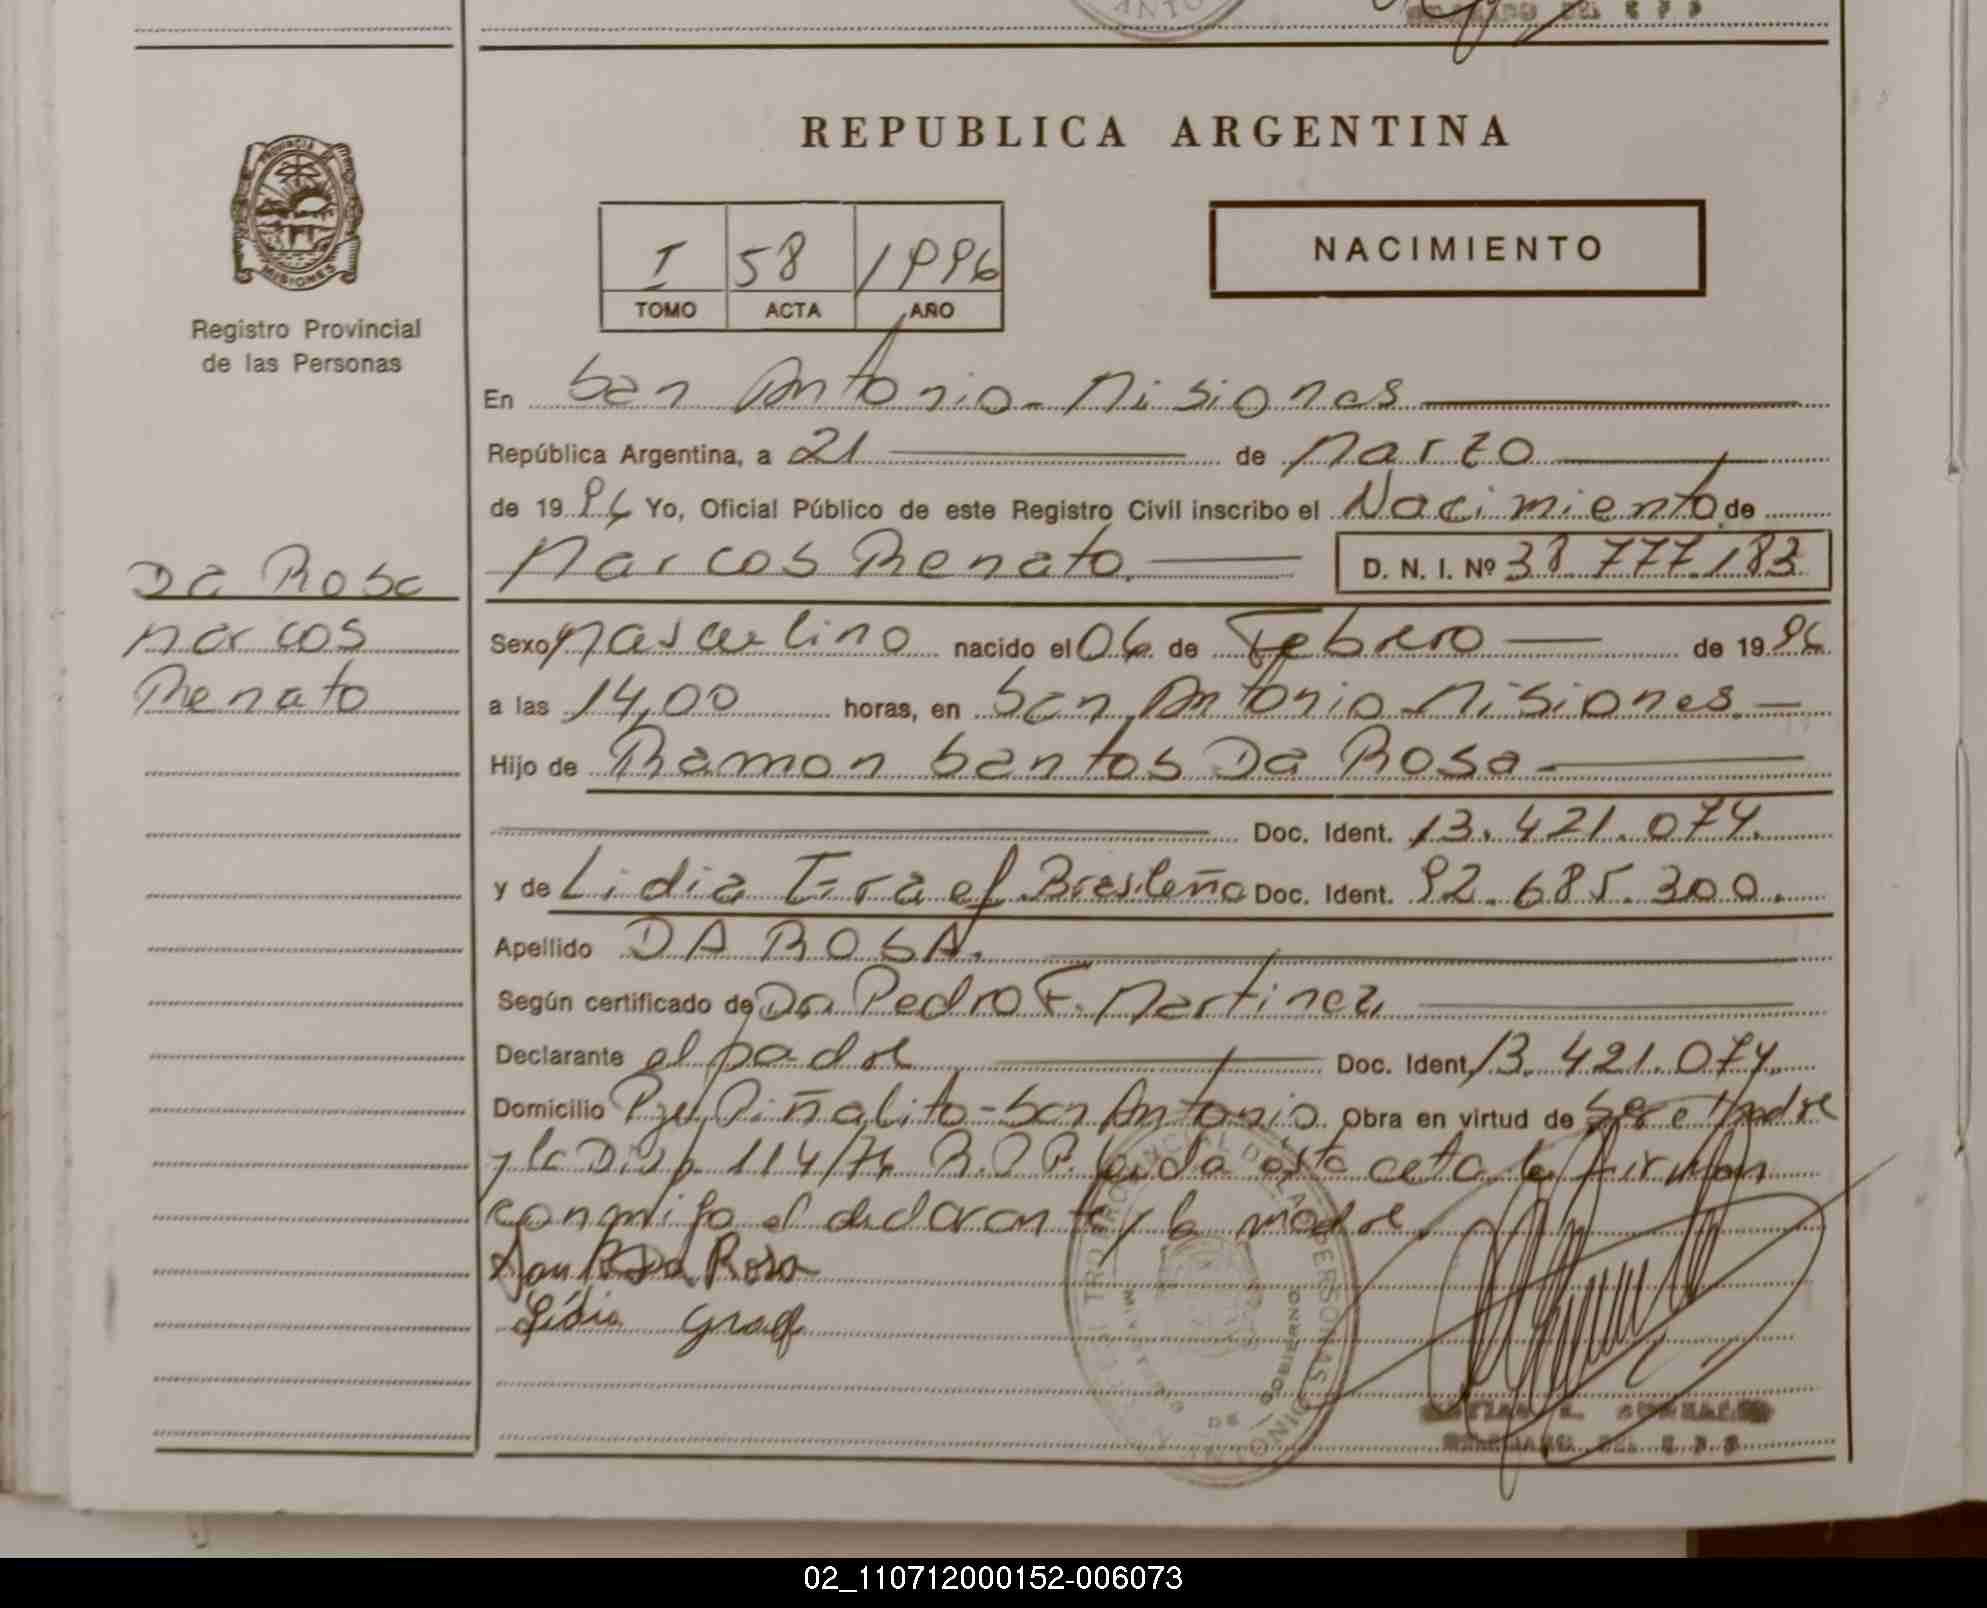 REPUBLICA ARGENTINA
PROVINCIA DE
MISIONES
Registro Provincial
de las Personas
I 58 1996
TOMO ACTA AÑO
NACIMIENTO
En San Antonio - Misiones
República Argentina, a 21 de Marzo
de 1996 Yo, Oficial Público de este Registro Civil inscribo el Nacimiento de
Marcos Renato. D. N. I. Nº 38.777.183
Da Rosa
Marcos
Renato
Sexo Masculino nacido el 06 de Febrero de 1996
a las 14,00 horas, en San Antonio Misiones.
Hijo de Ramon Santos Da Rosa
Doc. Ident. 13.421.074.
y de Lidia Graef Brasileña Doc. Ident. 92.685.300.
Apellido DA ROSA.
Según certificado de Dr. Pedro F. Martinez
Declarante el padre Doc. Ident. 13.421.074.
Domicilio Pje Piñalito - San Antonio. Obra en virtud de ser el padre
y la Disp. 114/74 R.P.P. leida esta acta la firman
conmigo el declarante y la madre.
Da Rosa
Lidia Graef
REGISTRO PROVINCIAL DE LAS PERSONAS
MINISTERIO DE GOBIERNO
SAN ANTONIO
02_110712000152-006073